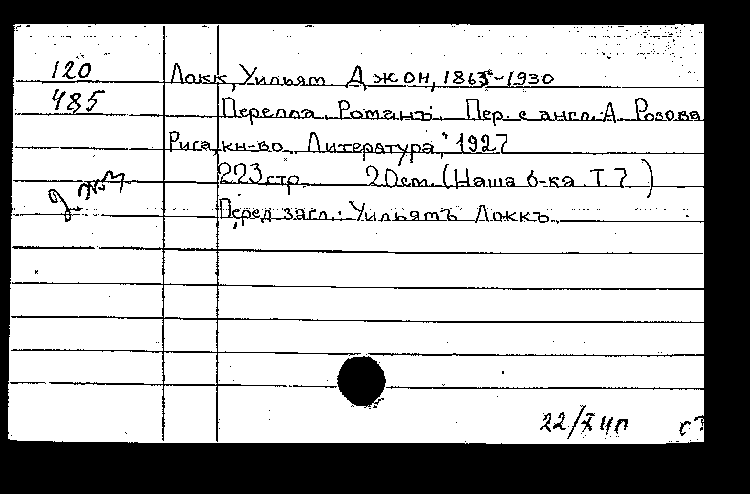 120
485
Локк, Уильям Джон, 1863-1930
Перелла. Романъ. Пер. с англ. А. Розова
Рига, кн-во „Литература," 1927
223стр. 20см. (Наша б-ка. Т. 7)
Перед загл.: Уильямъ Локкъ.
22/X 40